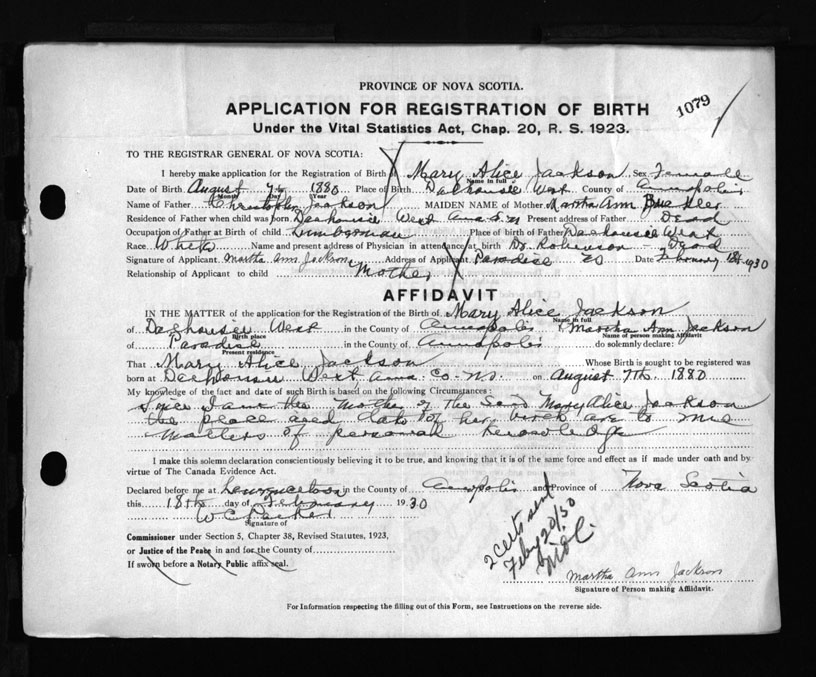 PROVINCE OF NOVA SCOTIA.
APPLICATION FOR REGISTRATION OF BIRTH 1079
Under the Vital Statistics Act, Chap. 20, R. S. 1923.
TO THE REGISTRAR GENERAL OF NOVA SCOTIA:
I hereby make application for the Registration of Birth of Mary Alice Jackson Sex Female
Name in full
Date of Birth August 7th 1880 Place of Birth Dalhousie West County of Annapolis
Month Day Year
Name of Father Christopher Jackson MAIDEN NAME of Mother Martha Ann
Residence of Father when child was born Dalhousie West Anna Present address of Father Dead
Occupation of Father at Birth of child Lumberman Place of birth of Father Dalhousie West
Race White Name and present address of Physician in attendance at birth Dr Robinson - Dead
Signature of Applicant Martha Ann Jackson Address of Applicant Paradise Date February 18th 1930
Relationship of Applicant to child Mother
AFFIDAVIT
IN THE MATTER of the application for the Registration of the Birth of Mary Alice Jackson
Name in full
of Dalhousie West in the County of Annapolis I Martha Ann Jackson
Birth place Name of person making Affidavit
of Paradise in the County of Annapolis do solemnly declare:
Present residence
That Mary Alice Jackson Whose Birth is sought to be registered was
born at Dalhousie West, Anna. Co. N.S. on August 7th 1880
My knowledge of the fact and date of such Birth is based on the following Circumstances:
Since I am the mother of the said Mary Alice Jackson
the place and date of her birth are to me
matters of personal knowledge
I make this solemn declaration conscientiously believing it to be true, and knowing that it is of the same force and effect as if made under oath and by
virtue of The Canada Evidence Act.
Declared before me at Lawrencetown in the County of Annapolis and Province of Nova Scotia
this 18th day of February 1930
W C Parker
Signature of
Commissioner under Section 5, Chapter 38, Revised Statutes, 1923,
or Justice of the Peace in and for the County of
If sworn before a Notary Public affix seal.
2 Certs sent
Feby 20/30
Martha Ann Jackson
Signature of Person making Affidavit.
For Information respecting the filling out of this Form, see Instructions on the reverse side.